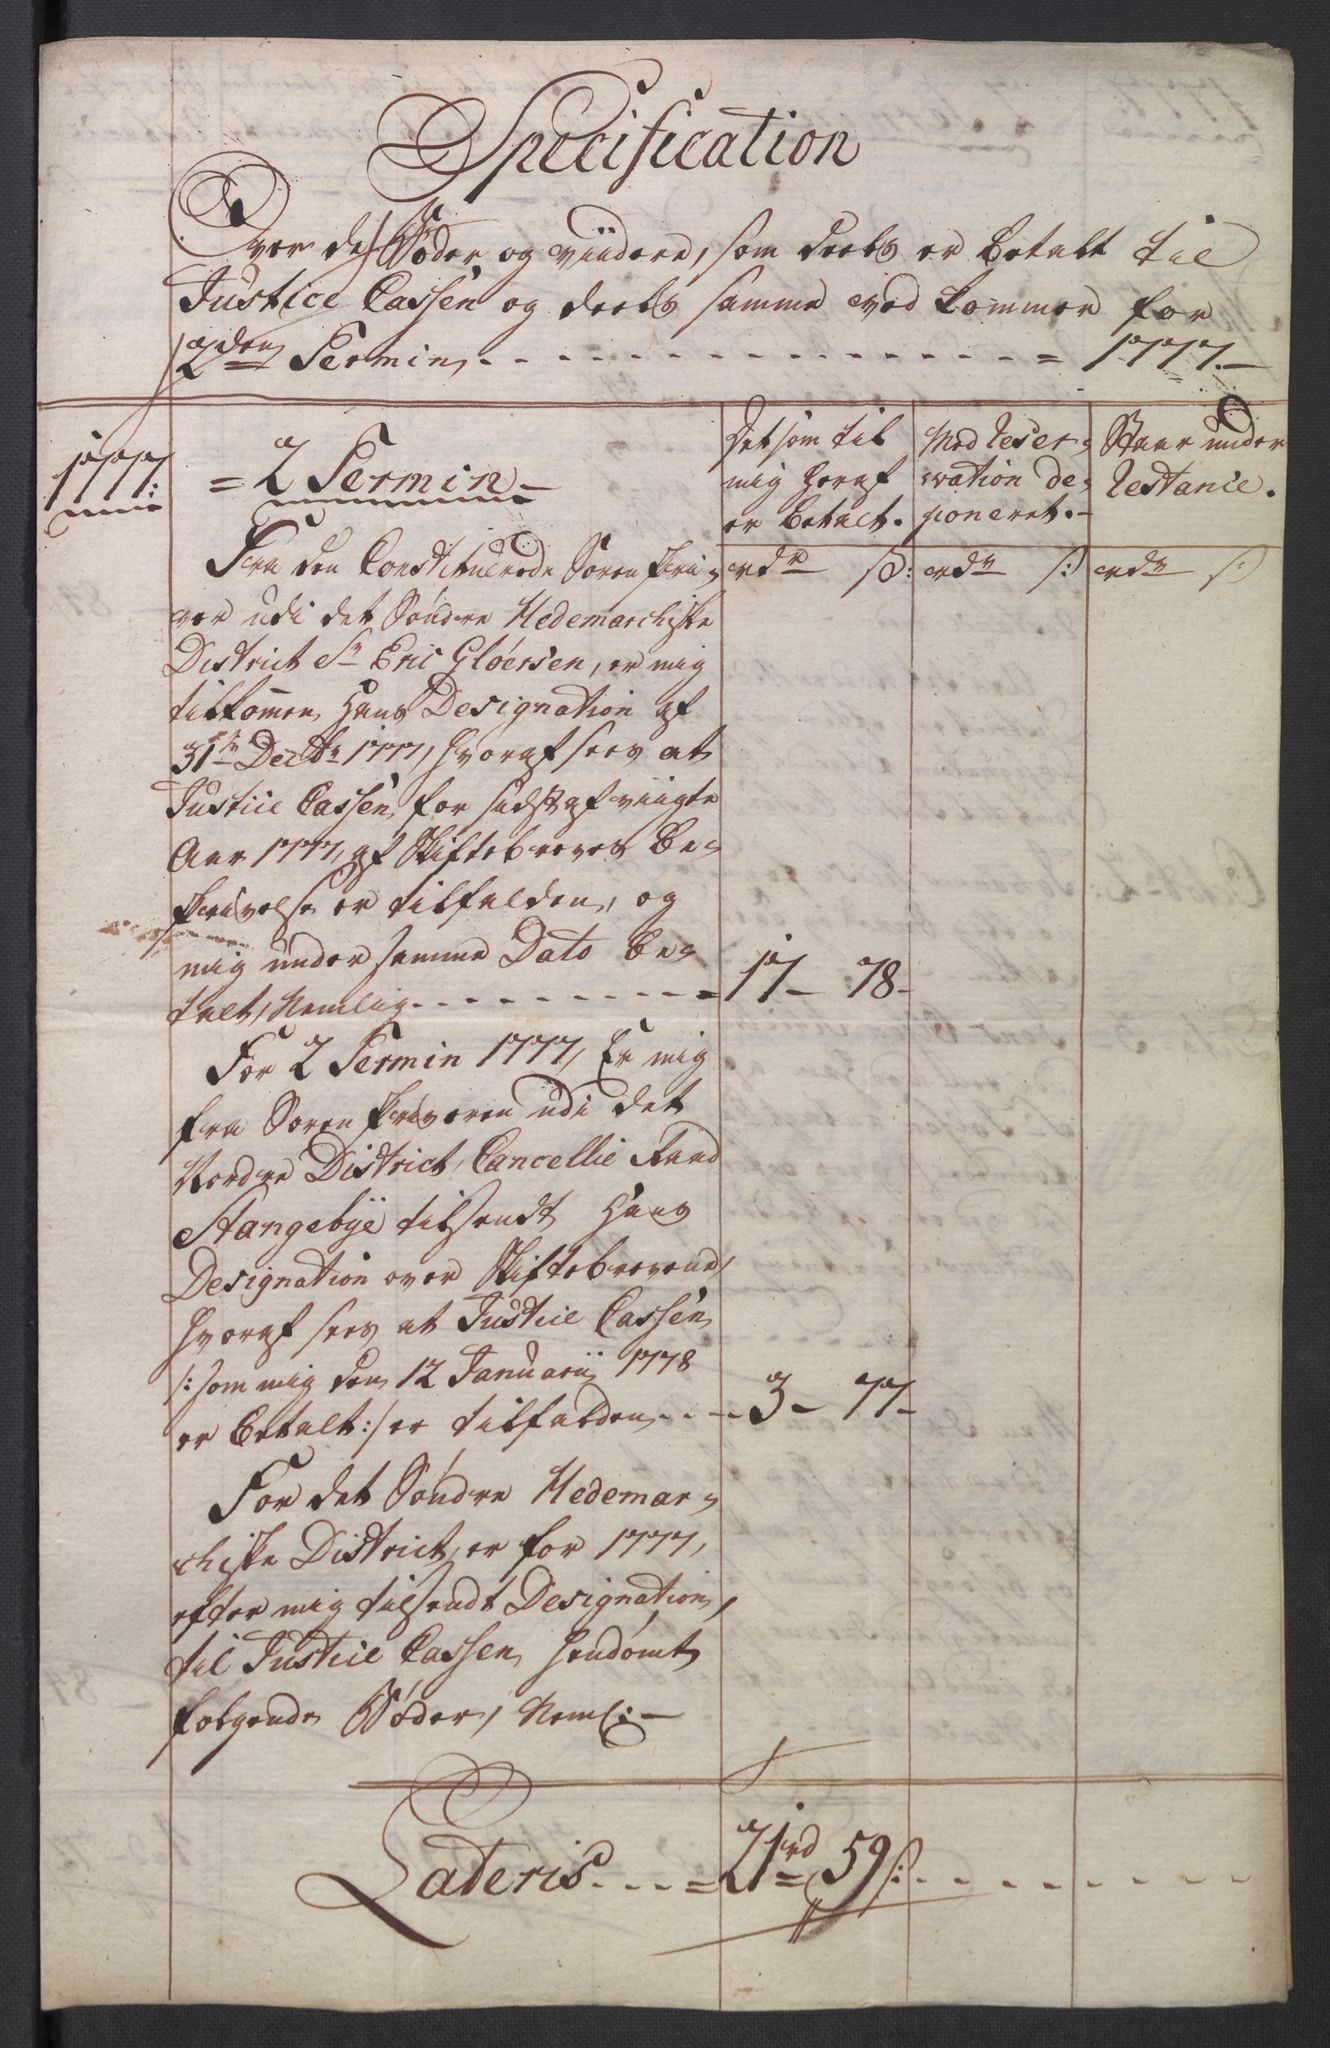 Specification
Over de Bøder og viidere, som deels er betalt til
Justice Cassen og deels samme ved kommer for
2den Termin - - - - - = 1777.-
1777:
= 2 Termin -
Det som til
mig heraf
er betalt.
Med reser-
vation de-
poneret.-
Staar under
restance.
rdr s: rdr s: rdr s:
Fra den Constituerede Sorenskri-
ver udi det Søndre Hedemarchiske
District Sr Eric Gløersen, er mig
tilkom̄en Hans Designation af
31te Decbr 1777, hvoraf sees at
Justice Cassen for sidst afvigte
Aar 1777, af Skiftebreves be-
skrivelse er tilfalden, og
mig under samme Dato be-
talt, Nemlig - - - - - = 17 - 78 -
For 2 Termin 1777, Er mig
fra Sorenskriveren udi det
Nordre District, Cancellie Raad
Stangebye tilsendt Hans
Designation over Skiftebrevene,
hvoraf sees at Justice Cassen
/: som mig den 12 Januarii 1778
er betalt :/ er tilfalden - - - 3 - 77 -
For det Søndre Hedemar-
chiske District, er for 1777,
efter mig tilsendt Designation,
til Justice Cassen hendømt
følgende Bøder, Neml: -
Lateris - - - = 21rd 59 s: - - - - -